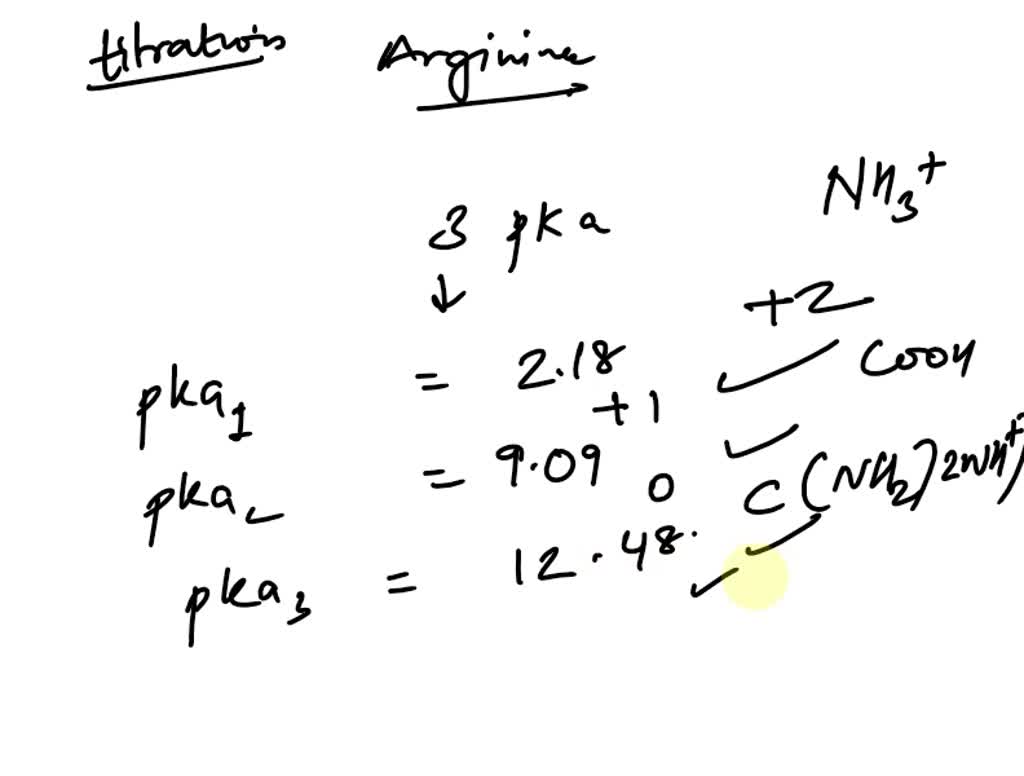 titration Arginine
NH3+
3 pka
↓
+2
pka1 = 2.18 COOH
+1
pka2 = 9.09
0 C(NH2)2NH+
pka3 = 12.48.